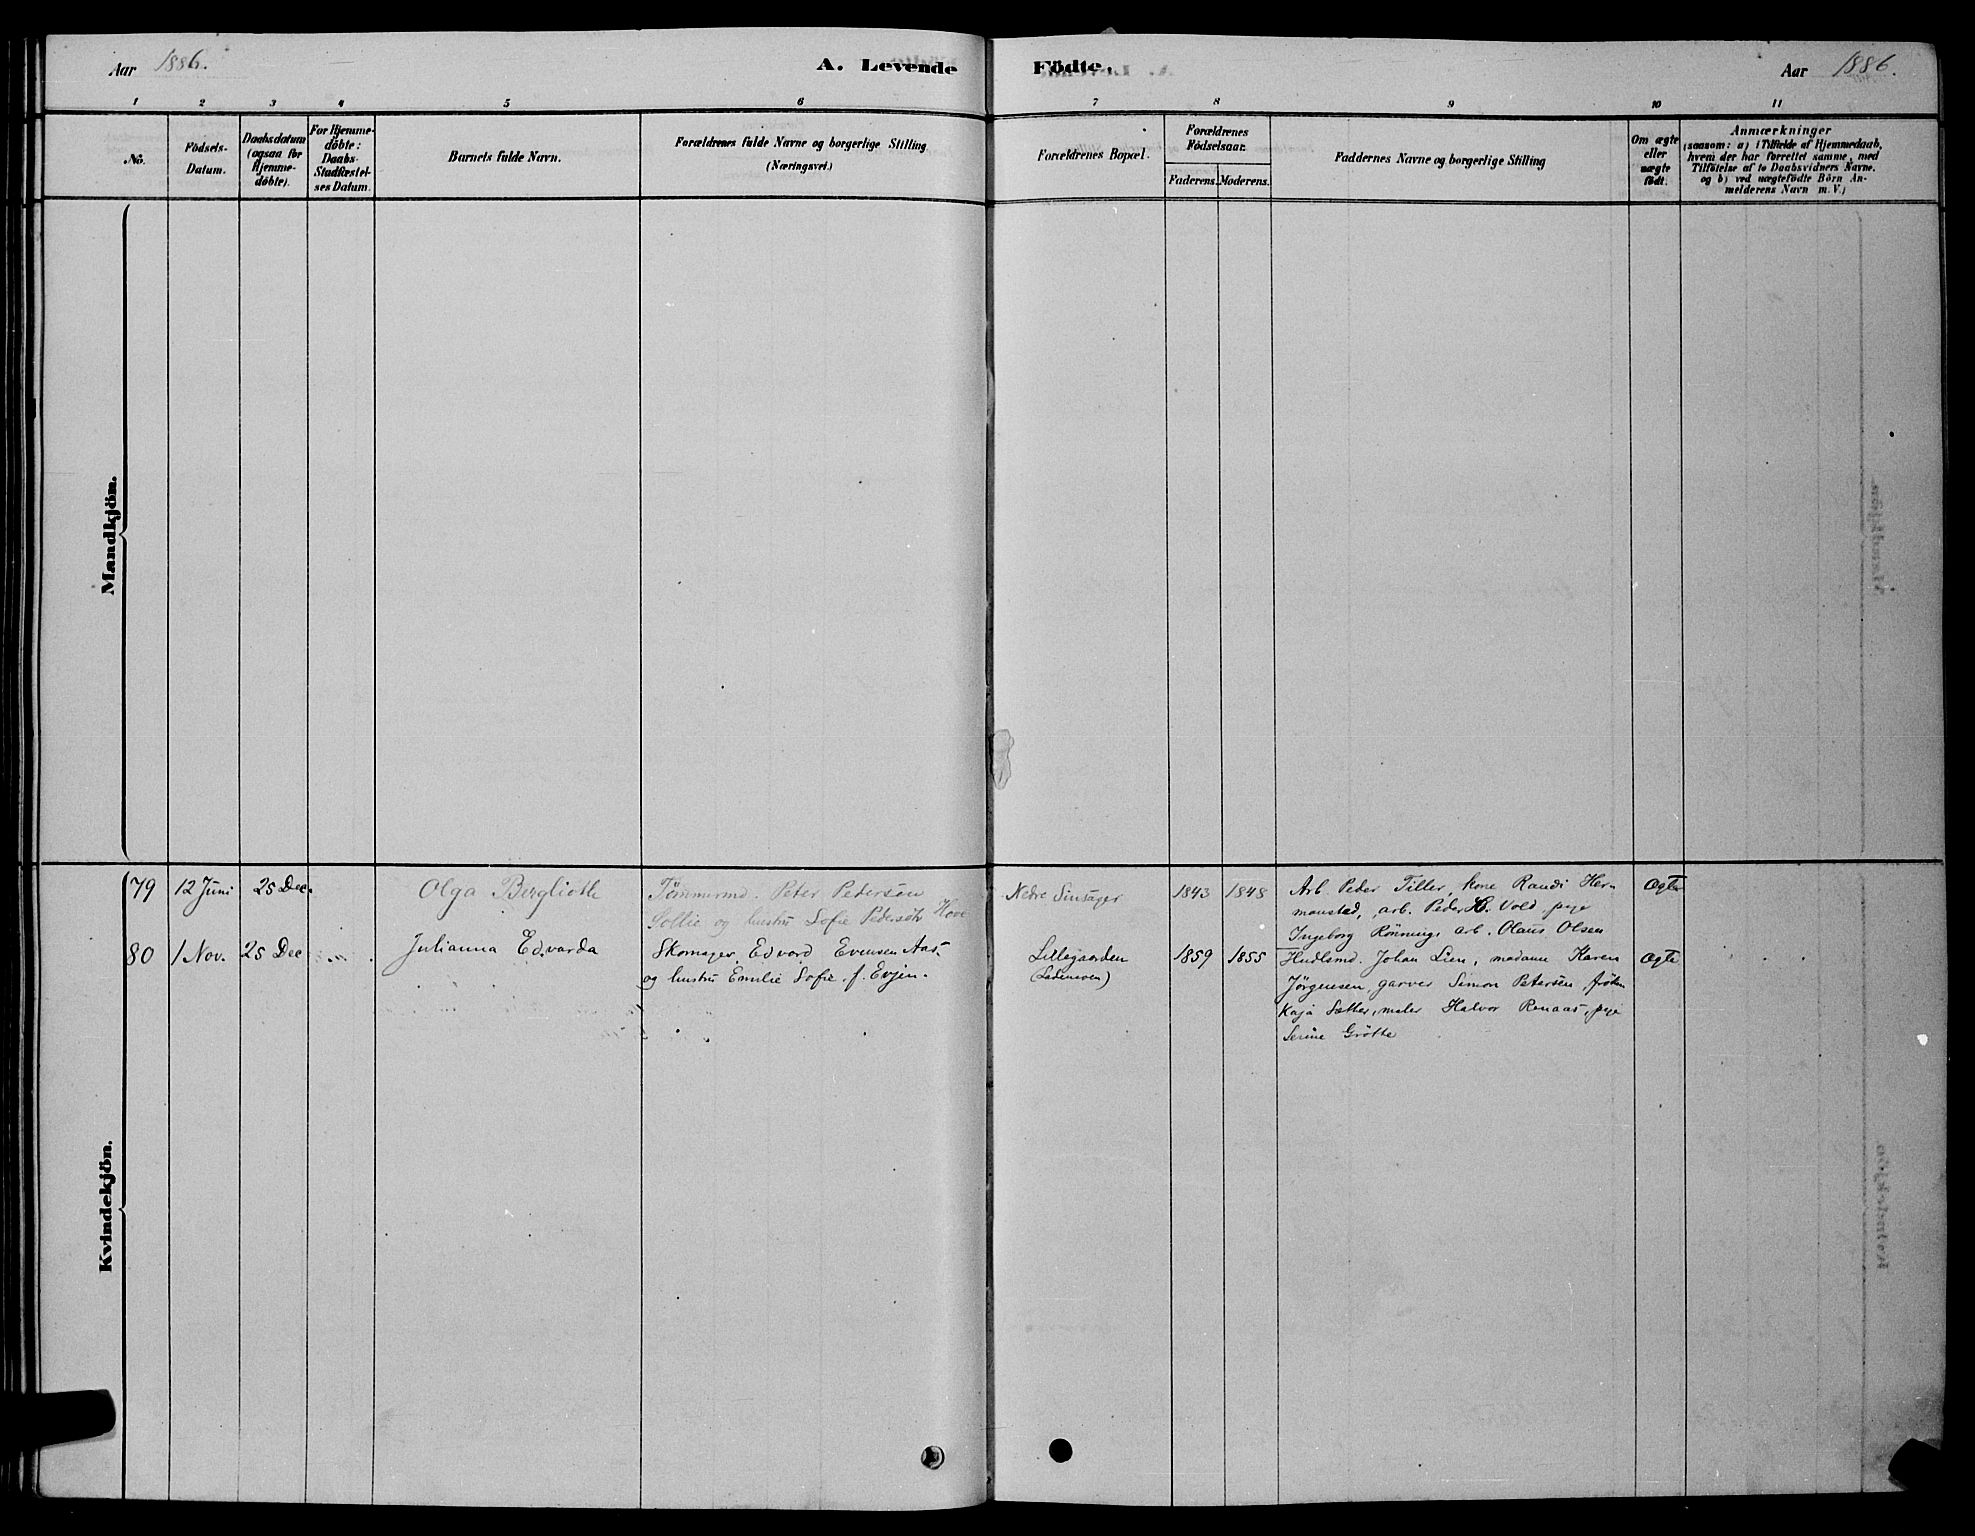 Aar 1886.
A. Levende Födte.
Aar 1886.
1 2 3 4 5 6 7 8 9 10 11
No.
Födsels-
Datum.
Daabsdatum
(ogsaa for
Hjemme-
döbte).
For Hjemme-
döbte:
Daabs-
Stadfæstel-
ses Datum.
Barnets fulde Navn.
Forældrenes fulde Navne og borgerlige Stilling
(Næringsvei.)
Forældrenes Bopæl.
Forældrenes
Födselsaar.
Faderens. Moderens.
Faddernes Navne og borgerlige Stilling
Om ægte
eller
uægte
født.
Anmærkninger
(saasom: a) i Tilfælde af Hjemmedaab,
hvem der har forrettet samme, med
Tilföielse af to Daabsvidners Navne.
og b) ved uægtefödte Börn An-
melderens Navn m. V.)
Mandkjön.
Kvindekjön.
79 12 Juni 25 Dec. Olga Bergliotte
Tömmermd. Peter Pedersen
Sollie og hustru Sofie Pedersdt Hove
Nedre Sinsager
1843 1848
Arb. Peder Tiller, kone Randi Her-
manstad, arb. Peder H. Vold, pige
Ingeborg Rönning, arb. Olaus Olsen
Ægte
80 1 Nov. 25 Dec Julianna Edvarda
Skomager Edvard Evensen Aas
og hustru Emilie Sofie f. Evjen.
Lillegaarden
(Lademoen)
1859 1855
Hndlsmd. Johan Lien, madame Karen
Jörgensen, garver Simon Petersen, fröken
Kaja Sæther, maler Halvor Renaas, pige
Serine Grötte
Ægte